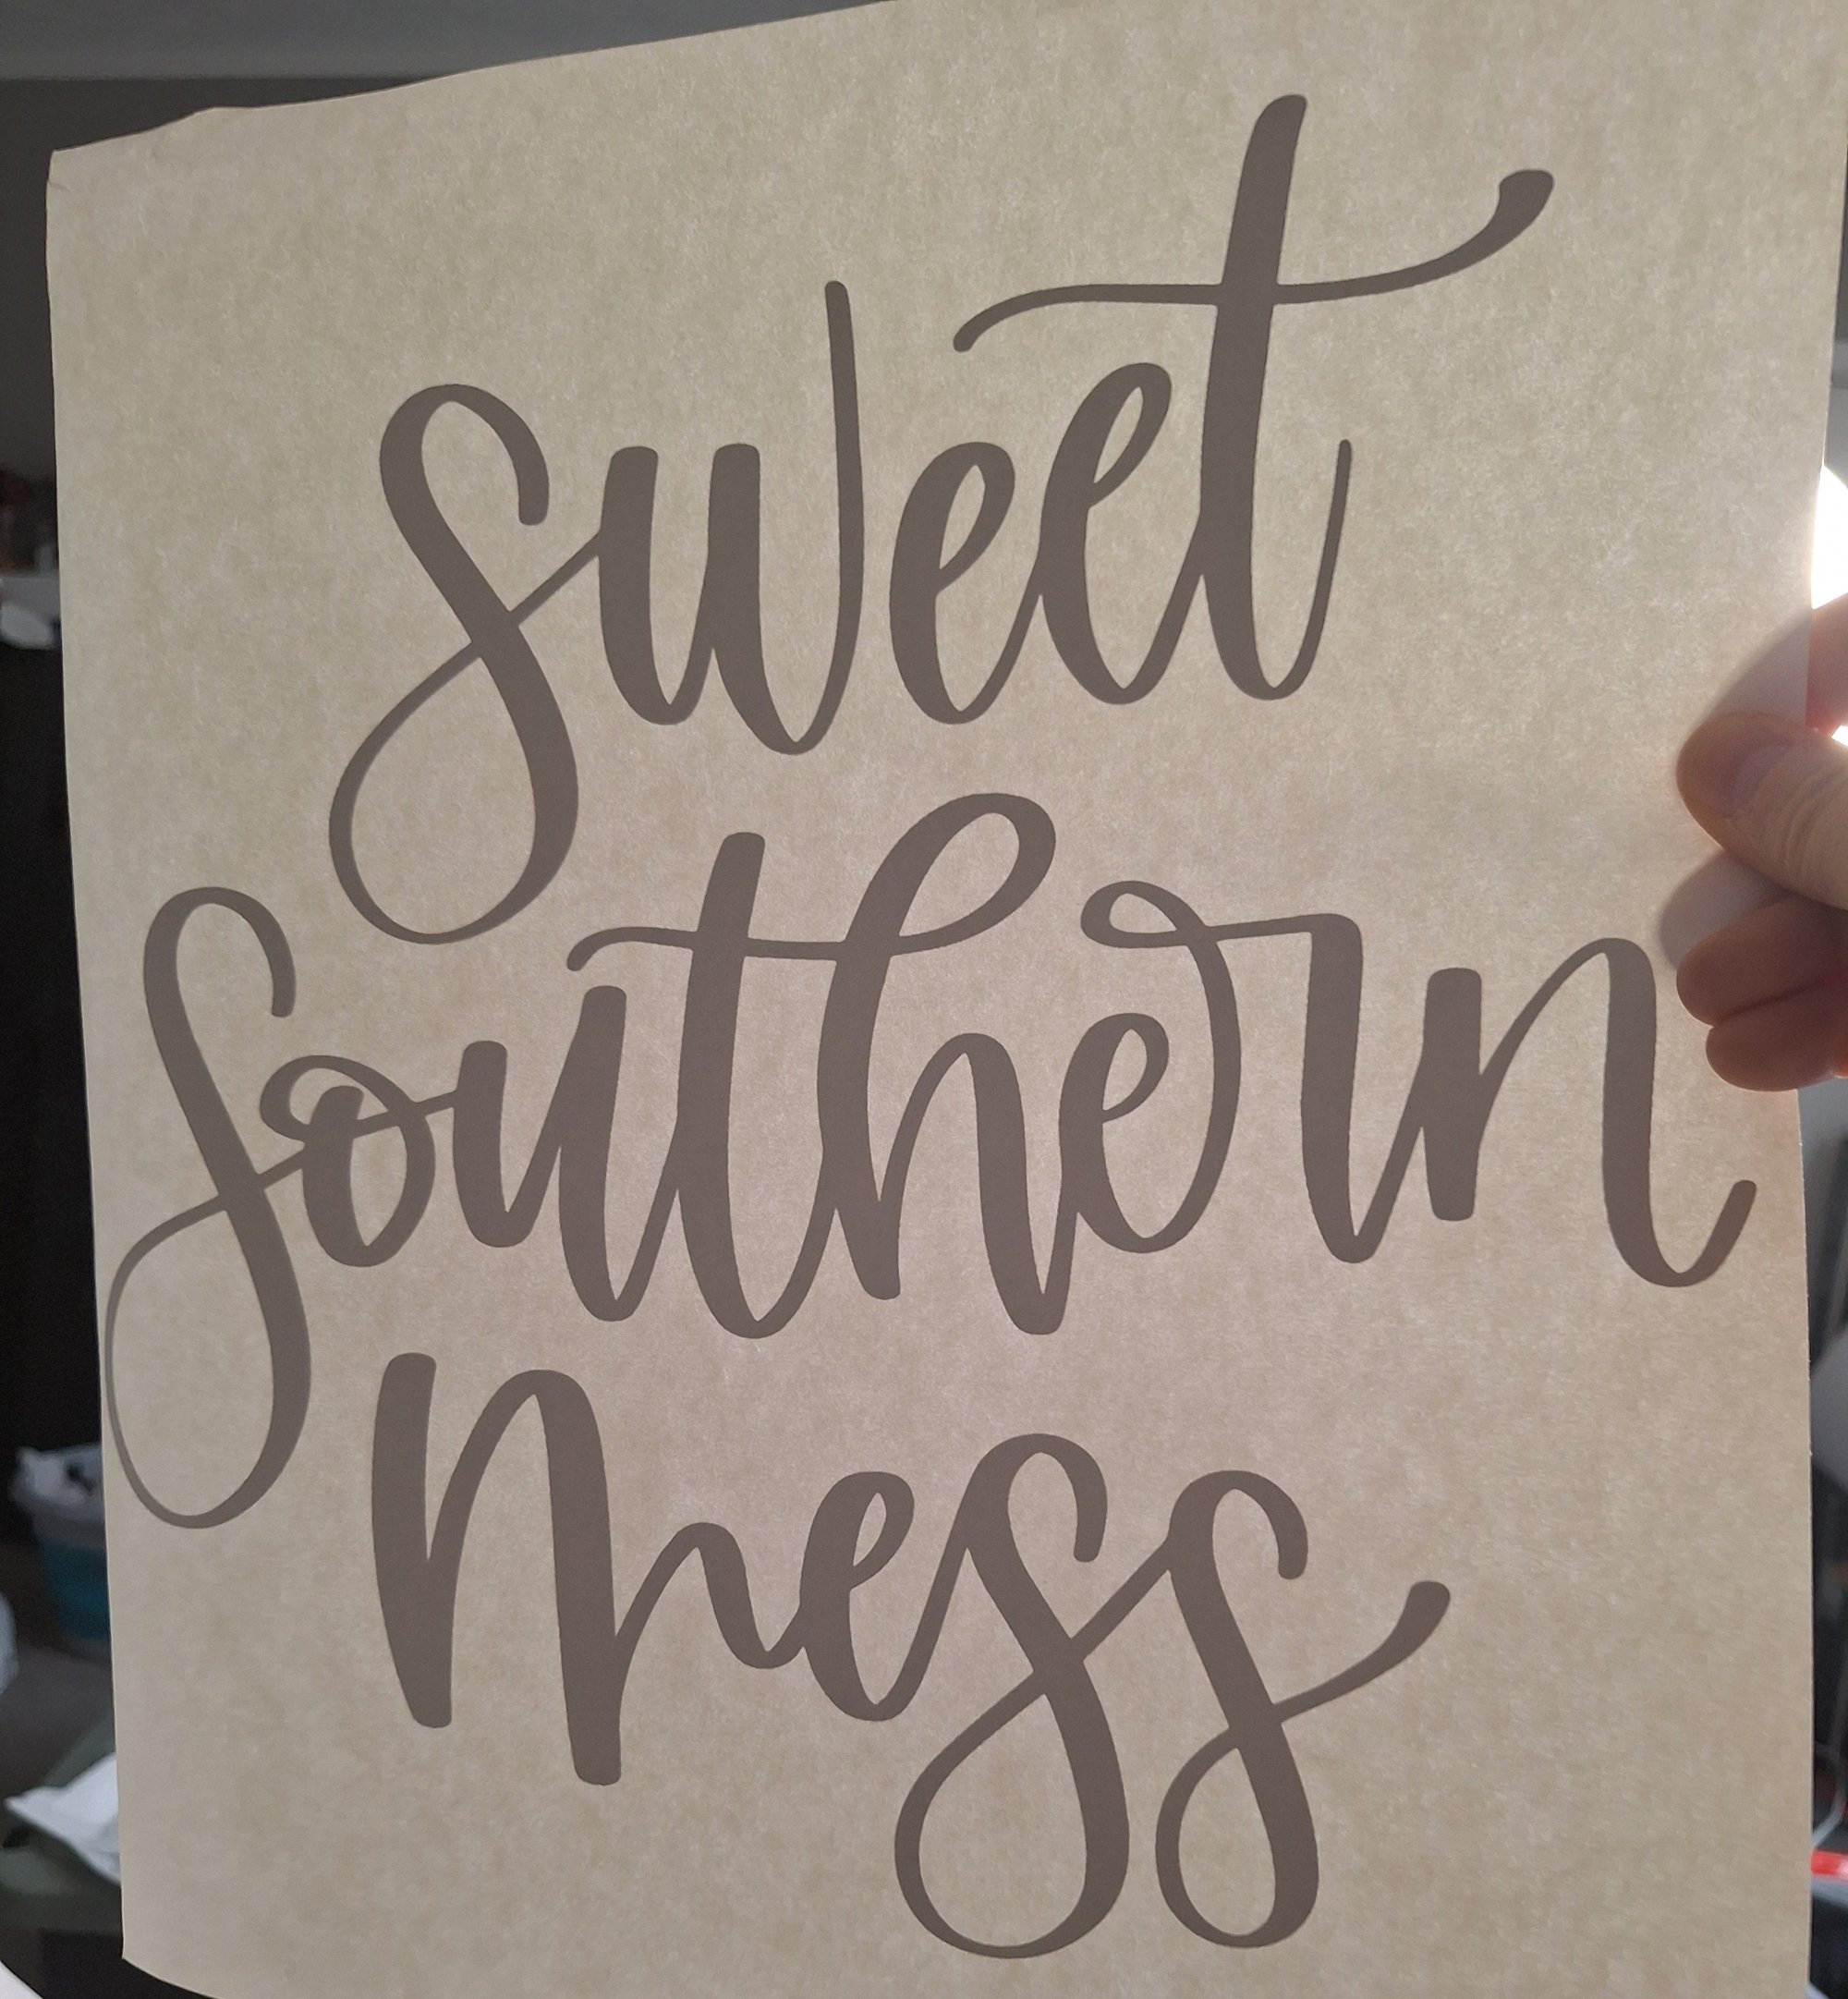 sweet
Southern
Mess